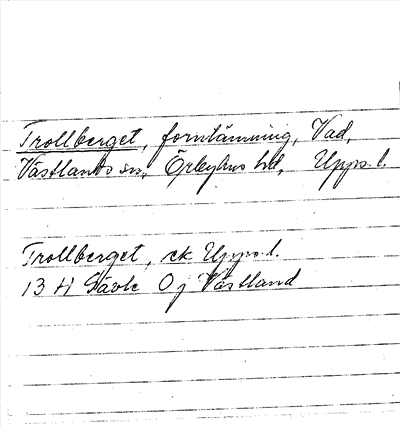 Trollberget, fornlämning, Vad,
Västlands sn, Örbyhus hd, Upps. l.
Trollberget, ek Upps. l.
13 H Gävle 0 j Västland